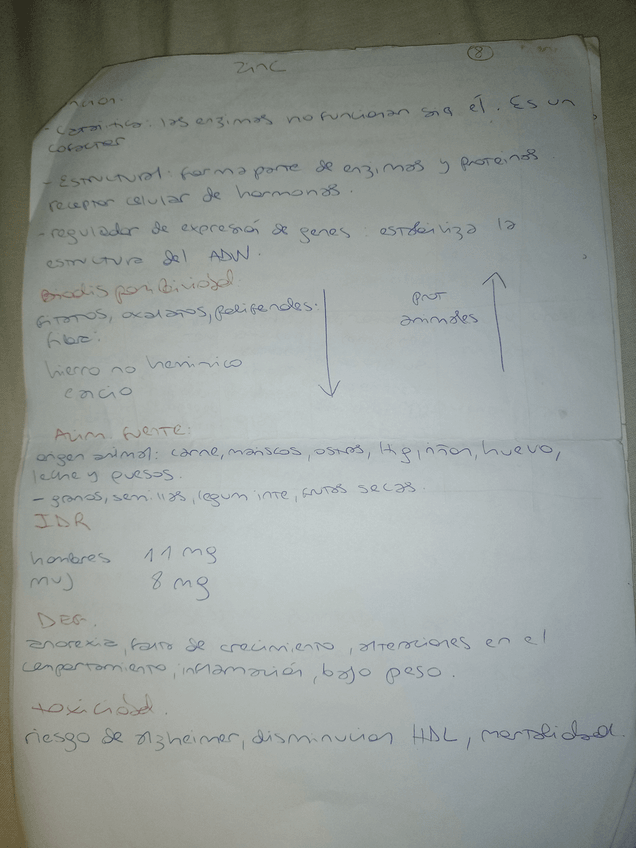 8
Zinc
- Catalitica: las enzimas no funcionan sin él. Es un
cofactor
- Estructural: forma parte de enzimas y proteinas
receptor celular de hormonas.
- regulador de expresión de genes: estabiliza la
estructura del ADN.
Biodisponibilidad
fitatos, oxalatos, polifenoles.
fibra.
prot
animales
hierro no heminico
calcio
Alim. fuente:
origen animal: carne, mariscos, ostras, hig, riñon, huevo,
leche y quesos.
- granos, semillas, legum inte, frutos secas.
IDR
hombres 11 mg
muj 8 mg
DEF.
anorexia, falta de crecimiento, alteraciones en el
comportamiento, inflamación, bajo peso.
toxicidad.
riesgo de alzheimer, disminucion HDL, mortalidad.